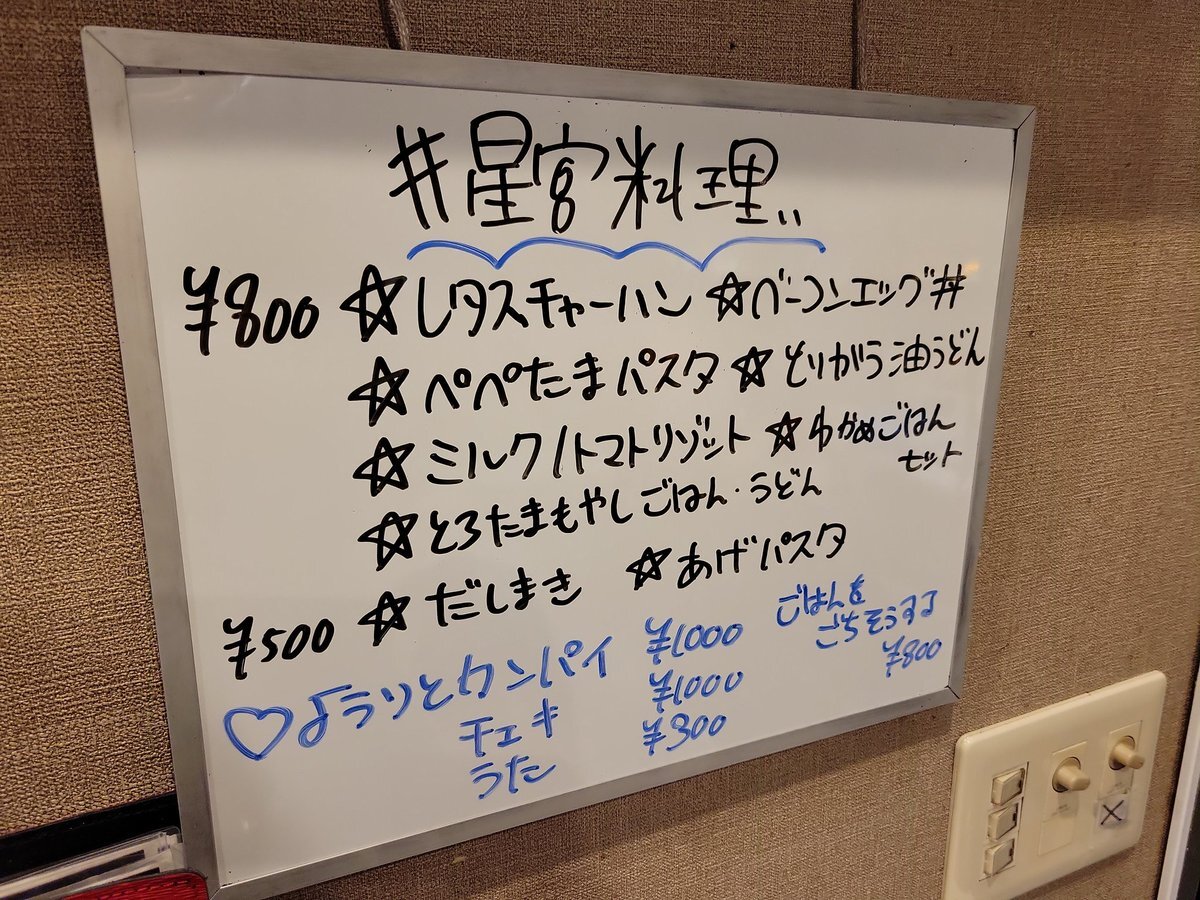 #星宮料理..
¥800 ☆レタスチャーハン ☆ベーコンエッグ丼
☆ペペたまパスタ ☆とりがら油うどん
☆ミルク/トマトリゾット ☆わかめごはんセット
☆とろたまもやしごはん・うどん
¥500 ☆だしまき ☆あげパスタ
♡ようソとカンパイ ¥1000
チェキ ¥1000
うた ¥300
ごはんを
ごちそうする
¥800
×